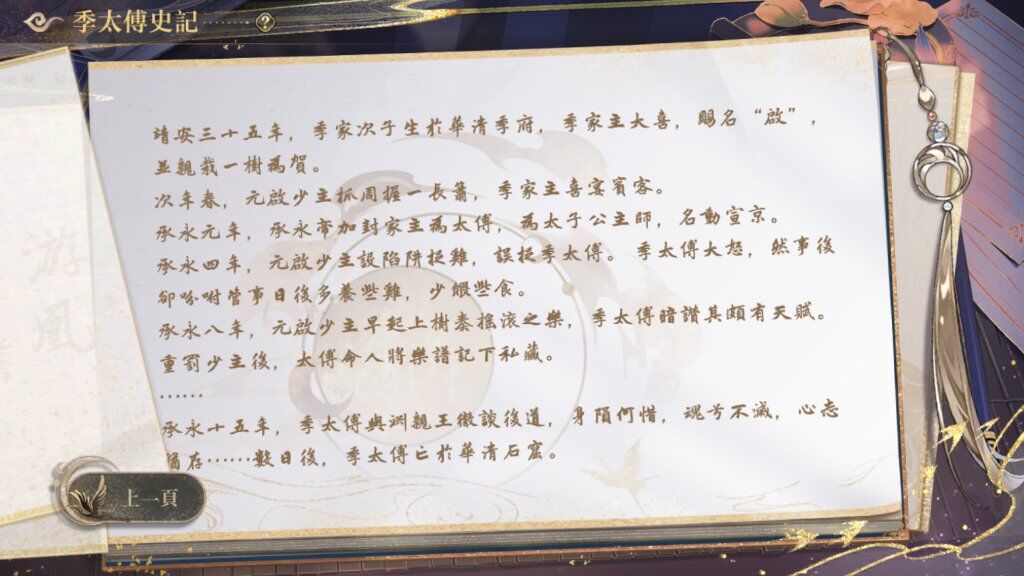 季太傅史記
靖安三十五年，季家次子生於華清季府，季家主大喜，賜名“啟”，
並親栽一樹為賀。
次年春，元啟少主抓周握一長簫，季家主喜宴賓客。
承永元年，承永帝加封家主為太傅，為太子公主師，名動宣京。
承永四年，元啟少主設陷阱捉雞，誤捉季太傅。季太傅大怒，然事後
卻吩咐管事日後多養些雞，少餵些食。
承永八年，元啟少主早起上樹奏搖滾之樂，季太傅暗讚其頗有天賦。
重罰少主後，太傅命人將樂譜記下私藏。
……
承永十五年，季太傅與訓親王徹談後道，身隕何惜，魂兮不滅，心志
猶存……數日後，季太傅亡於華清石窟。
游風
上一頁